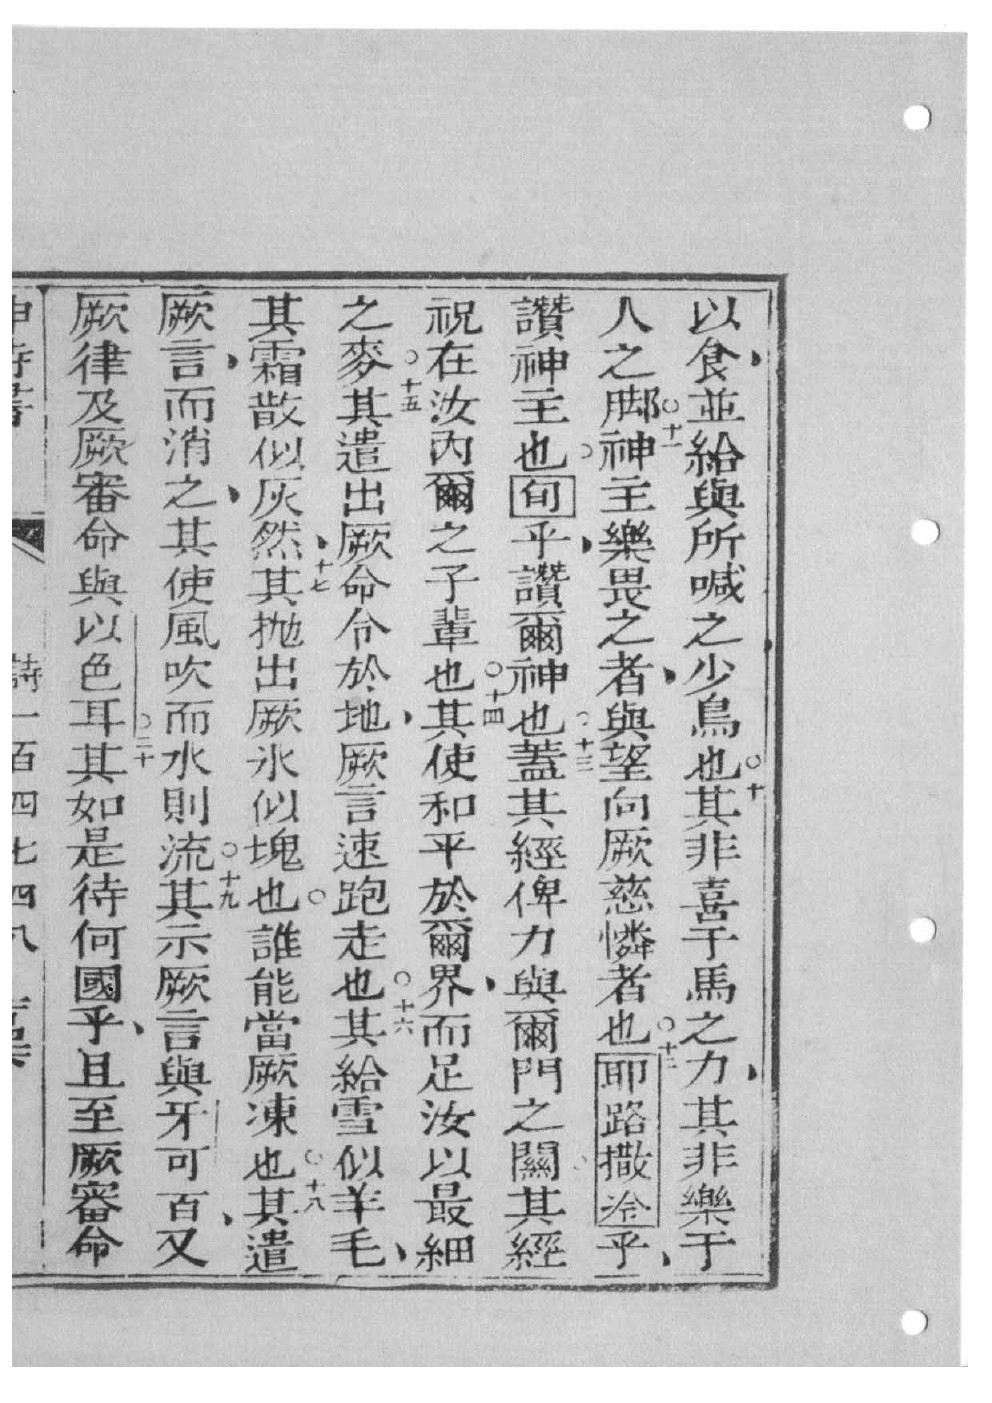 以食並給與所喊之少鳥也○十其非喜于馬之力其非樂于
人之脚○十一神主樂畏之者與望向厥慈憐者也○十二耶路撒冷乎
讚神主也○旬乎讚爾神也○十三蓋其經俾力與爾門之關其經
祝在汝內爾之子輩也○十四其使和平於爾界而足汝以最細
之麥○十五其遣出厥命令於地厥言速跑走也○十六其給雪似羊毛
其霜散似灰然十七其抛出厥氷似塊也○誰能當厥凍也○十八其遣
厥言而消之其使風吹而水則流○十九其示厥言與牙可百又
厥律及厥審命與以色耳○二十其如是待何國乎且至厥審命
詩一百四七四八